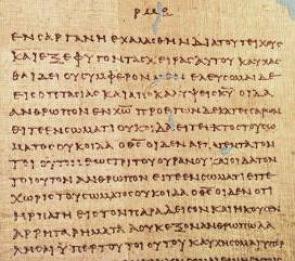 ΕΝϹΑΡΓΑΝΗΕΧΑΛΑϹΘΗΝΔΙΑΤΟΥΤΕΙΧΟΥϹ
ΚΑΙΕΞΕΦΥΓΟΝΤΑϹΧΕΙΡΑϹΑΥΤΟΥΚΑΥΧΑϹ
ΘΑΙΔΕΙΟΥϹΥΜΦΕΡΟΝΜΕΝΕΛΕΥϹΟΜΑΙΔΕ
ΕΙϹΟΠΤΑϹΙΑϹΚΑΙΑΠΟΚΑΛΥΨΕΙϹΚ̅Υ̅ΟΙΔΑ
ΑΝΘΡΩΠΟΝΕΝΧ̅Ω̅ΠΡΟΕΤΩΝΔΕΚΑΤΕϹϹΑΡΩΝ
ΕΙΤΕΕΝϹΩΜΑΤΙΟΥΚΟΙΔΑΕΙΤΕΕΚΤΟϹΤΟΥϹΩ
ΜΑΤΟϹΟΥΚΟΙΔΑΟΘ̅Ϲ̅ΟΙΔΕΝΑΡΠΑΓΕΝΤΑΤΟΝ
ΤΟΙΟΥΤΟΝΕΩϹΤΡΙΤΟΥΟΥΡΑΝΟΥΚΑΙΟΙΔΑΤΟΝ
ΤΟΙΟΥΤΟΝΑΝΘΡΩΠΟΝΕΙΤΕΕΝϹΩΜΑΤΙΕΙΤΕ
ΧΩΡΙϹΤΟΥϹΩΜΑΤΟϹΟΥΚΟΙΔΑΟΘ̅Ϲ̅ΟΙΔΕΝΟΤΙ
ΗΡΠΑΓΗΕΙϹΤΟΝΠΑΡΑΔΕΙϹΟΝΚΑΙΗΚΟΥϹΕΝ
ΑΡΡΗΤΑΡΗΜΑΤΑΑΟΥΚΕΞΟΝΑΝΘΡΩΠΩΛΑ
ΛΗϹΑΙΥΠΕΡΤΟΥΤΟΙΟΥΤΟΥΚΑΥΧΗϹΟΜΑΙΥΠΕΡ